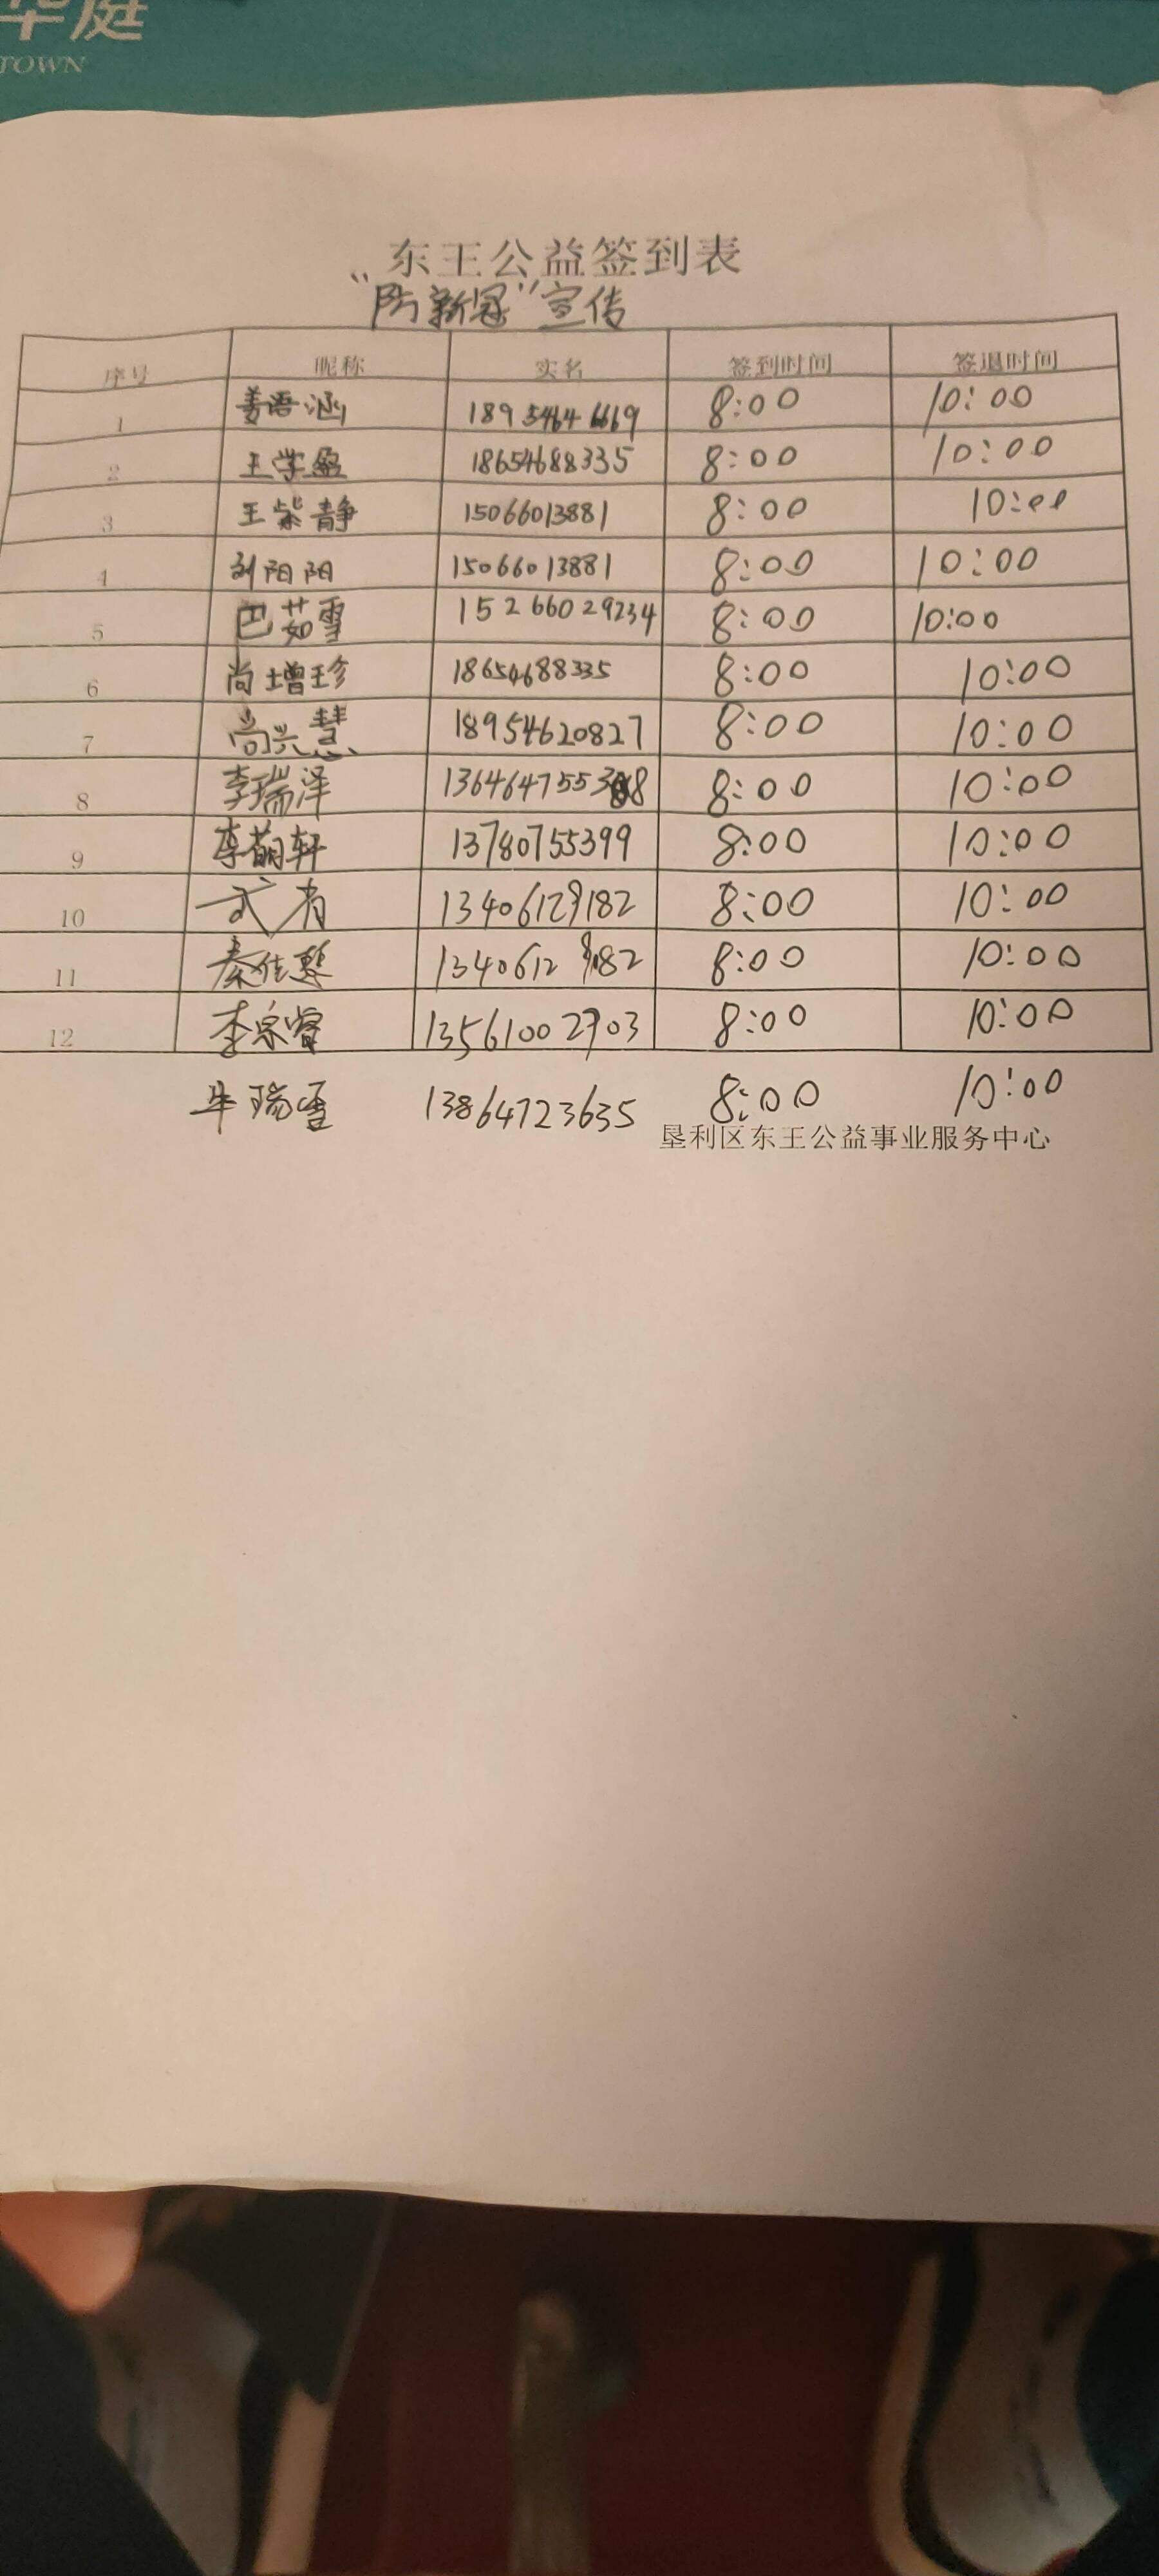 华庭
TOWN
东王公益签到表
“防新冠”宣传
序号 昵称 实名 签到时间 签退时间
1 姜语涵 18954646669 8:00 10:00
2 王学盈 18654688335 8:00 10:00
3 王紫静 15066013881 8:00 10:00
4 刘阳阳 15066013881 8:00 10:00
5 巴茹雪 15266029234 8:00 10:00
6 尚增珍 18654688335 8:00 10:00
7 尚兴慧 18954620827 8:00 10:00
8 李瑞泽 8:00 10:00
9 李萌轩 13780755399 8:00 10:00
10 武 13406129182 8:00 10:00
11 秦佳慧 13406129182 8:00 10:00
12 李宗睿 13561002703 8:00 10:00
牛瑞雪 13864723635 8:00 10:00
垦利区东王公益事业服务中心